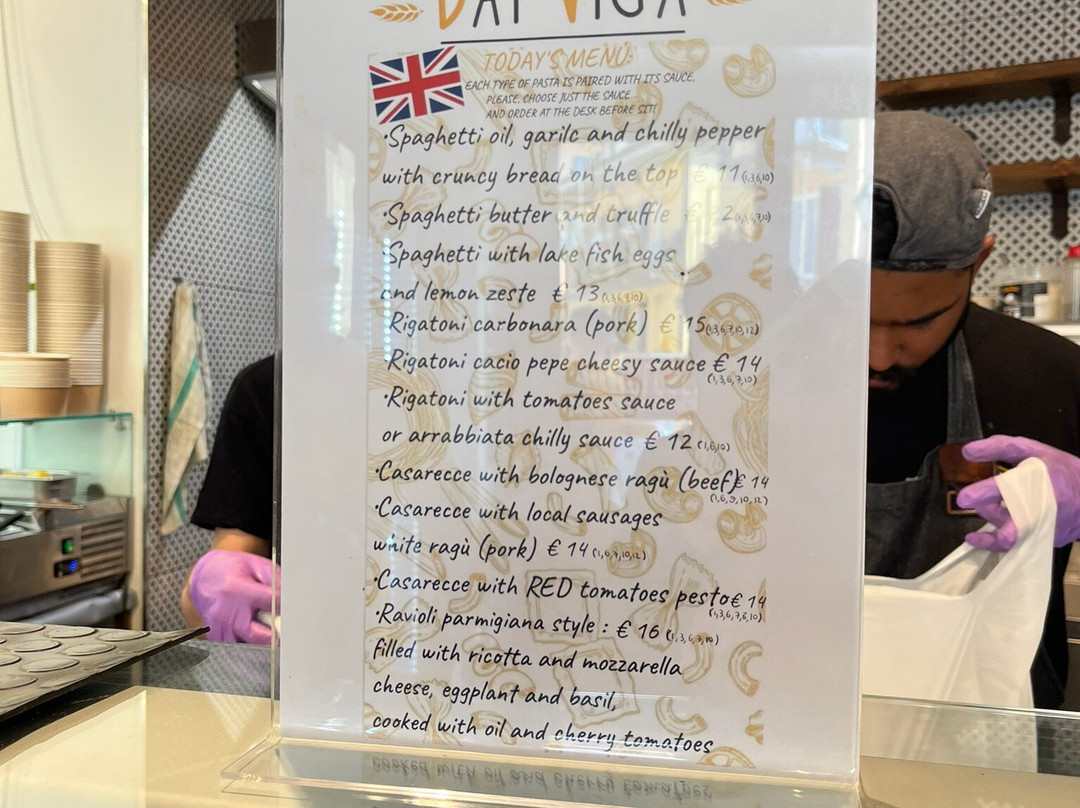 TODAY'S MENU:
EACH TYPE OF PASTA IS PAIRED WITH ITS SAUCE.
PLEASE, CHOOSE JUST THE SAUCE
AND ORDER AT THE DESK BEFORE SIT!
·Spaghetti oil, garilc and chilly pepper
with cruncy bread on the top € 11 (1,3,6,10)
·Spaghetti butter and truffle €
·Spaghetti with lake fish eggs
and lemon zeste € 13
Rigatoni carbonara (pork) € 15 (1,3,6,7,10,12)
·Rigatoni cacio pepe cheesy sauce € 14
(1,3,6,7,10)
·Rigatoni with tomatoes sauce
or arrabbiata chilly sauce € 12 (1,6,10)
·Casarecce with bolognese ragù (beef)€ 14
(1,6,9,10,12)
·Casarecce with local sausages
white ragù (pork) € 14 (1,6,7,10,12)
·Casarecce with RED tomatoes pesto€ 14
(1,3,6,7,8,10)
·Ravioli parmigiana style : € 16 (1,3,6,7,10)
filled with ricotta and mozzarella
cheese, eggplant and basil,
cooked with oil and cherry tomatoes